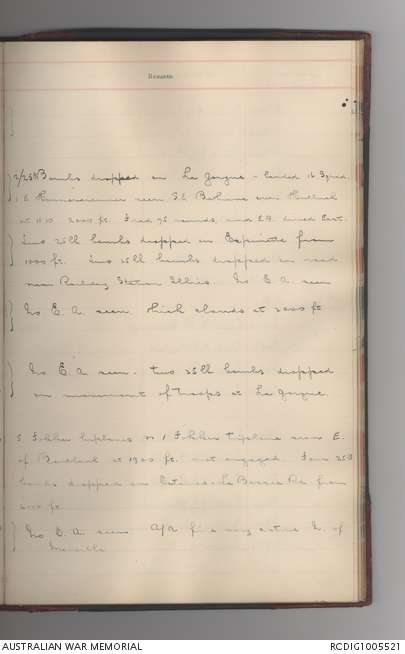 Remarks.
2/25lb Bombs dropped on La Gorgue - landed 16 Sqdn.
1 E. seen S.E. Bethune over
at 11.10. 2000 ft. Fired 75 rounds, and E.A. dived East.
Two 25lb bombs dropped on Espinette from
1000 ft. Two 25lb bombs dropped on road
near Railway Station Illies. No E.A. seen
No E.A. seen thick clouds at 2000 ft
No E.A. seen. Two 25lb bombs dropped
on movement of troops at La Gorgue.
5 Fokker biplanes or 1 Fokker triplane seen E.
of at 1900 ft. not engaged. Four 25lb
bombs dropped on Estaires - La Bassée Rd. from
ft.
No E.A. seen. A/A fire very active E. of
Merville
AUSTRALIAN WAR MEMORIAL
RCDIG1005521